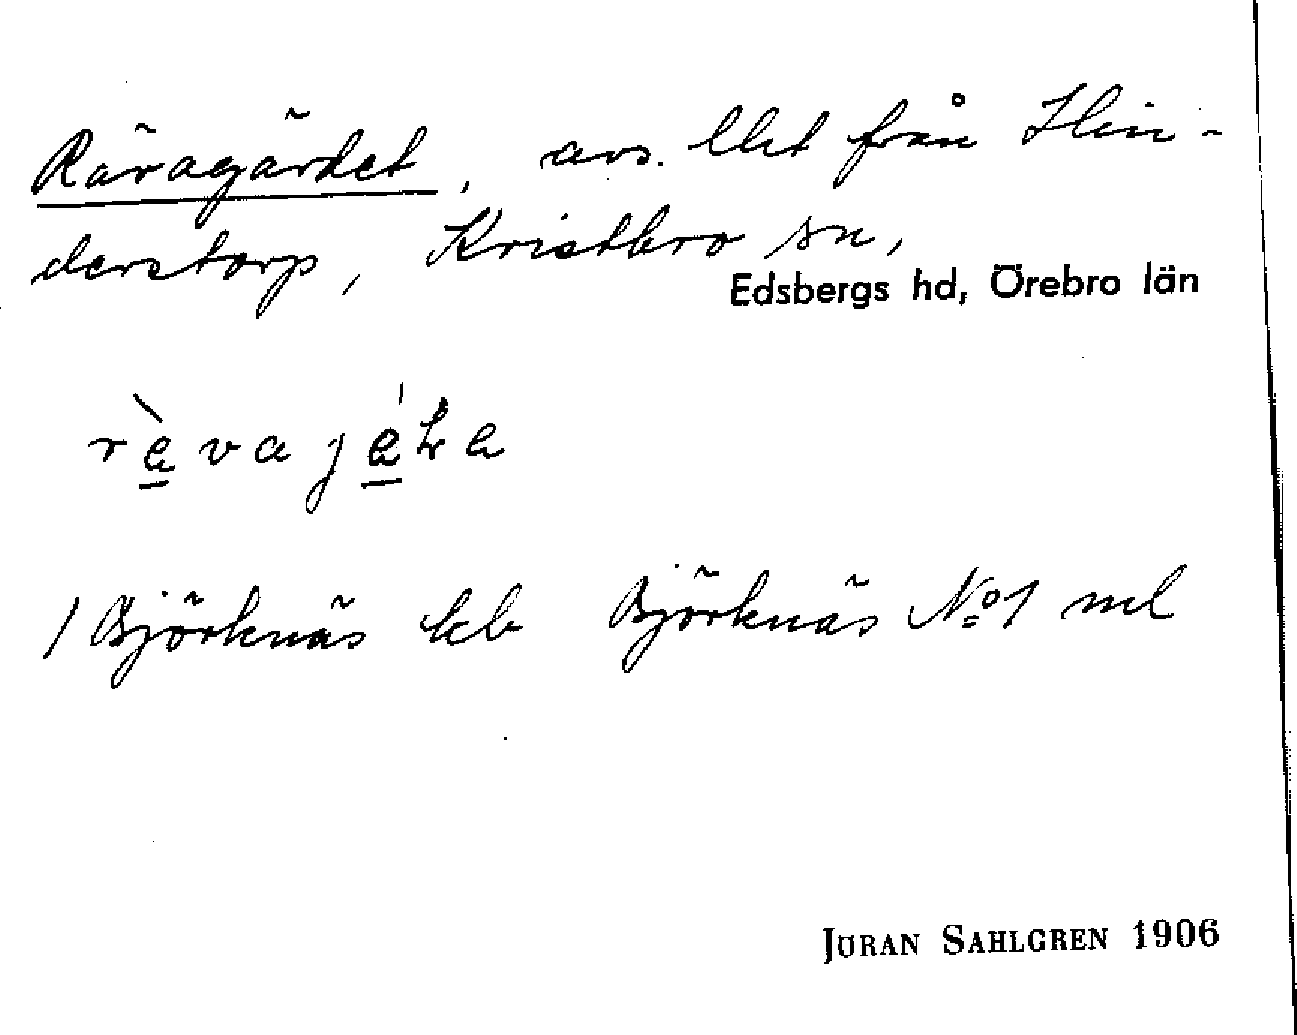 Rävagärdet, avs. Ulet från Hin-
derstorp, Kristbro sn,
Edsbergs hd, Örebro län
rèvajéta
/ Björknäs kb Björknäs No 1 ml
JÖRAN SAHLGREN 1906